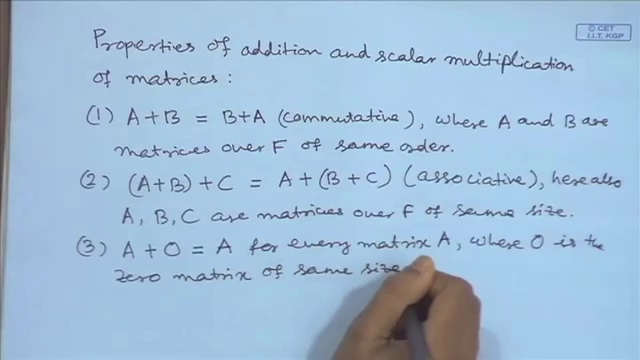 © CET
I.I.T. KGP
Properties of addition and scalar multiplication
of matrices :
(1) A+B = B+A (commutative), where A and B are
matrices over F of same order.
(2) (A+B) + C = A + (B + C) (associative), here also
A, B, C are matrices over F of same size.
(3) A + O = A for every matrix A, where O is the
zero matrix of same size